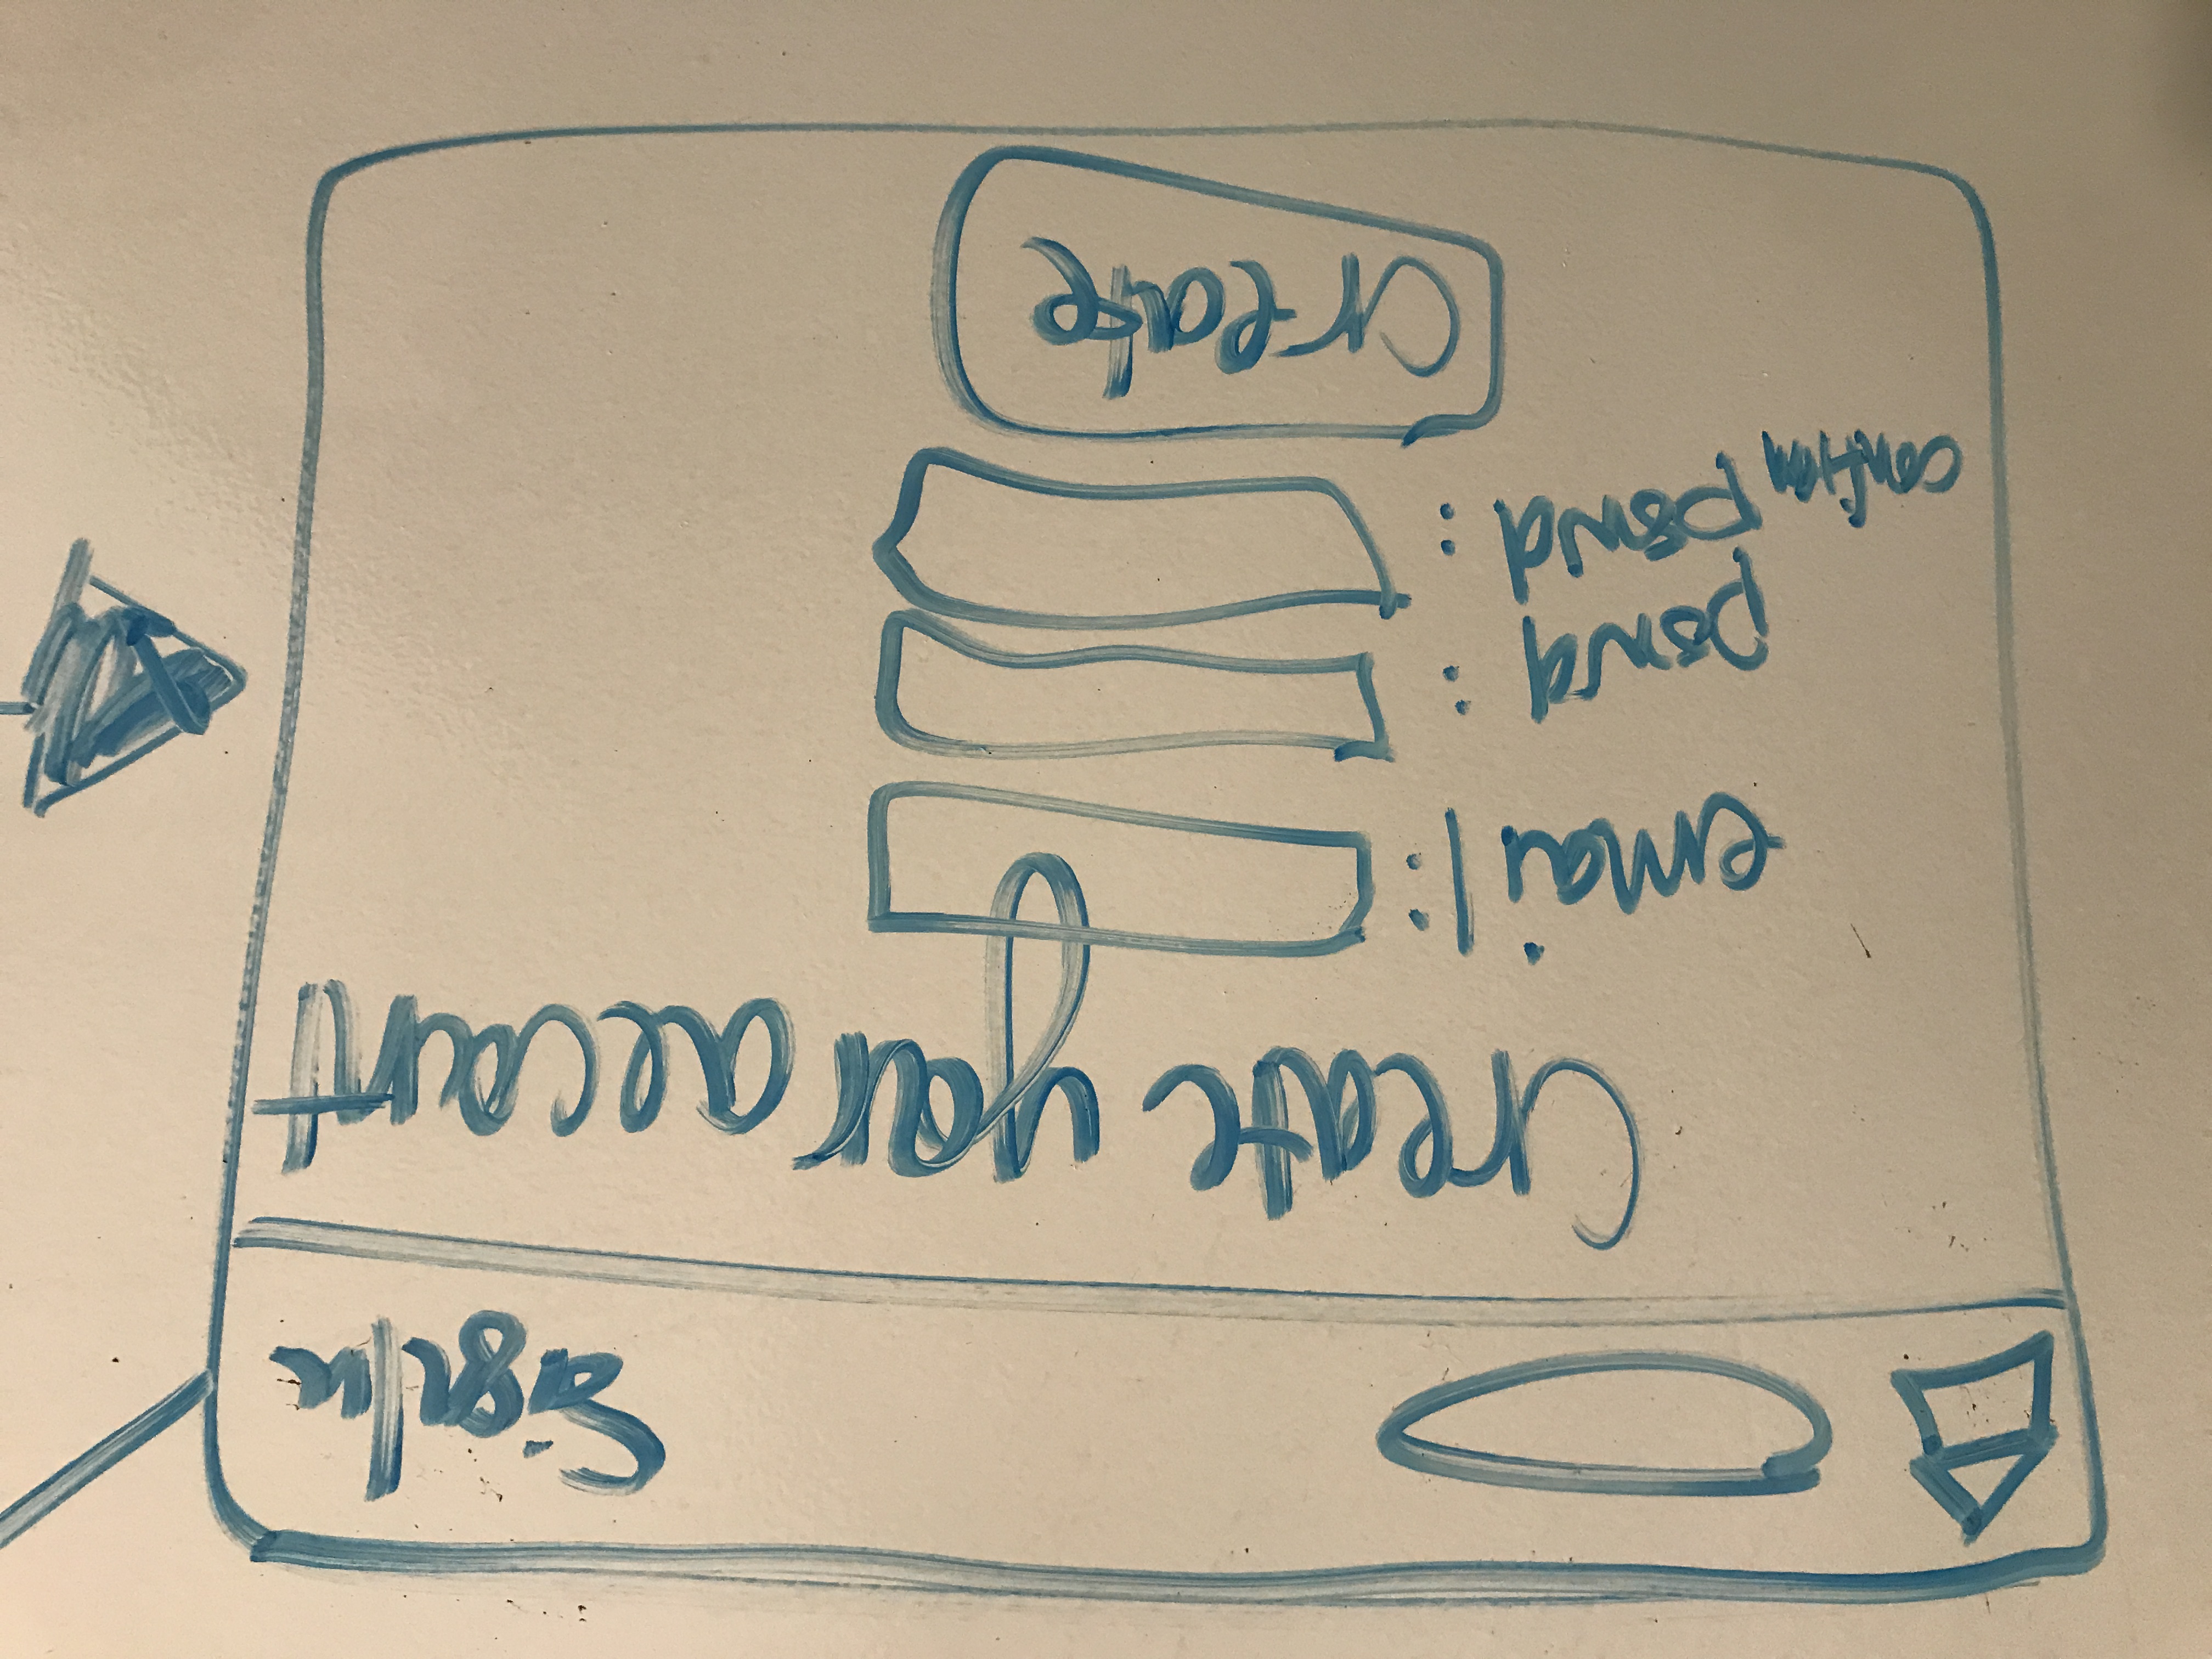 Sign In
Create your account
email:
pswd:
confirm pswd:
create